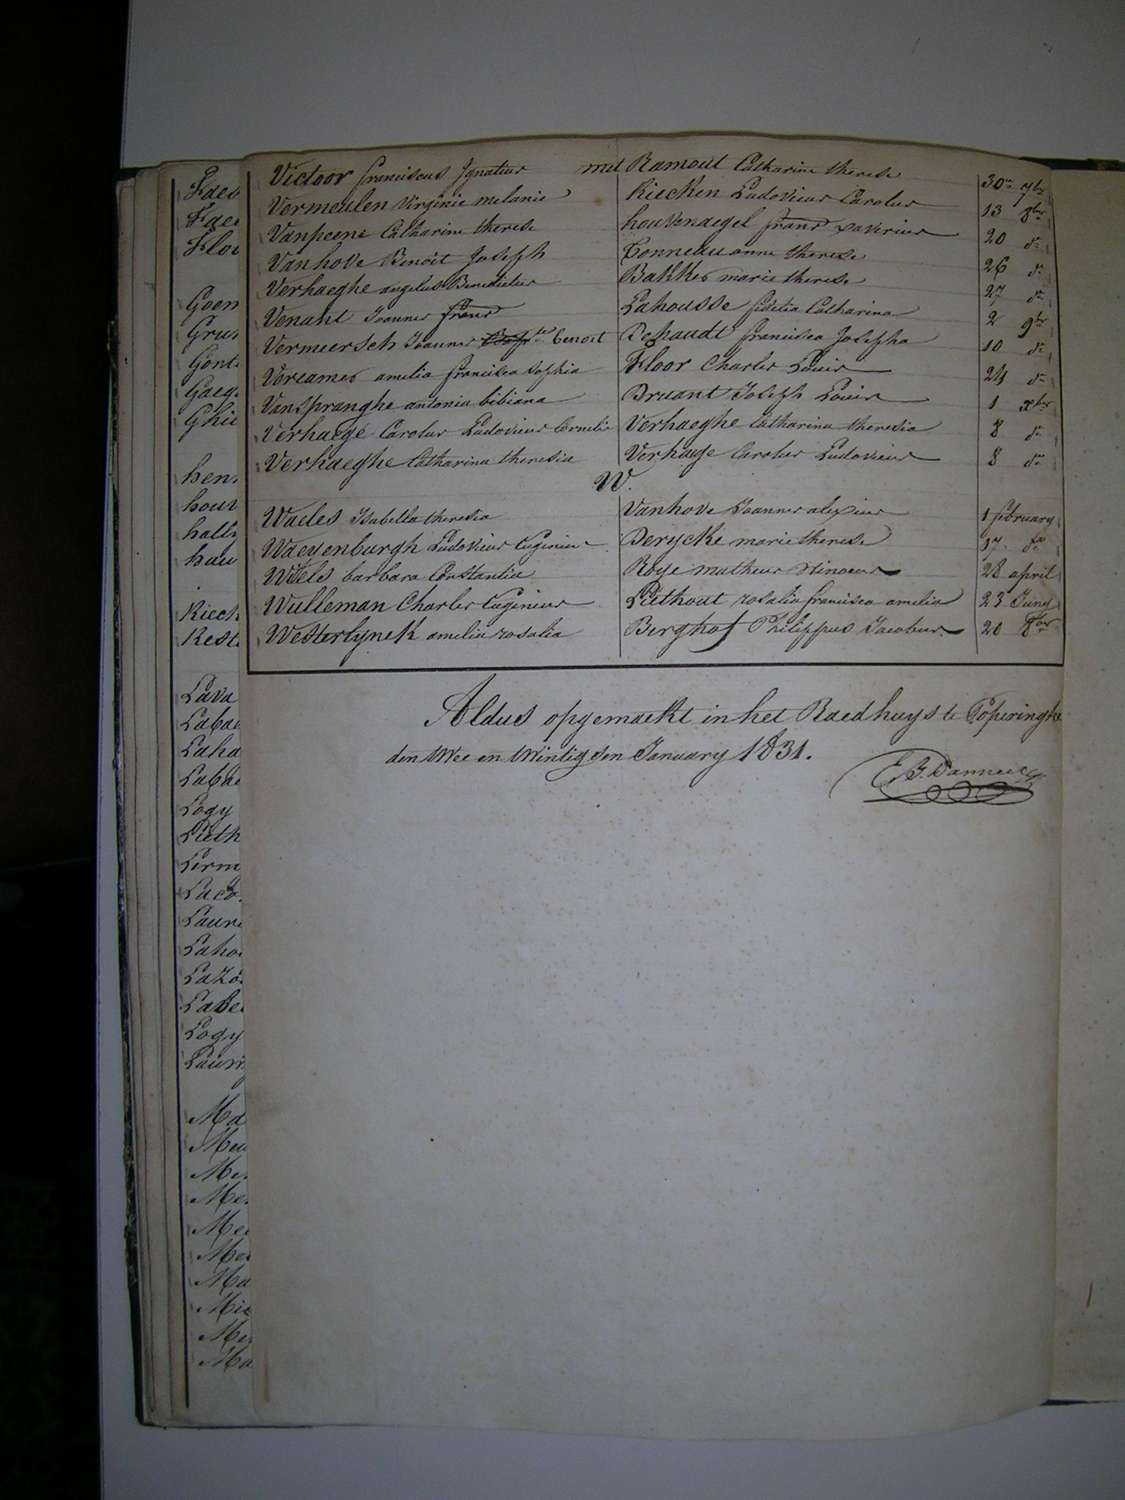 Victoor franciscus Ignatius met Ramout Catharine therese 30 7ber
Vermeulen Virginie melanie Kiecken Ludovicus Carolus 13 8ber
Vanpeene Catharine therese houvenaegel frans xaverius 20 do
Vanhove Benoit Joseph Tonneau anne therese 26 do
Verhaeghe angelus Benedictus Bakkes marie therese 27 do
Venant Joannes frans Lahousse fidelia Catharina 2 9ber
Vermeersch Joannes benoit francisca Josepha 10 do
Vereames amelia francisca sophia Floor Charles Louis 24 do
Vanspranghe antonia bibiana Bruant Joseph Louis 1 xber
Verhaege Carolus Ludovicus Cornelis Verhaeghe Catharina theresia 8 do
Verhaeghe Catharina theresia Verhaege Carolus Ludovicus 8 do
W.
Waeles Isabella theresia Vanhove Joannes alexius 1 february
Waeyenburgh Ludovicus Eugenius Derycke marie therese 17 do
Wiels barbara Constantia Roye matheus 28 april
Wulleman Charles Eugenius Liethout rosalia francisca amelia 23 Juny
Westerlynck amelia rosalia Berghof Philippus Jacobus 20 8ber
Aldus opgemaekt in het Raedhuys te Poperinghe
den twee en twintigsten January 1831.
Faes
Faes
Floo
Goem
Gont
Ghie
henn
houv
hau
Kieck
Keste
Lava
Laba
Laha
Logy
Lieth
Lerm
Laco
Laure
Laho
Logy
Ma
Me
Me
Me
Me
Me
Ma
Mi
Me
Ma